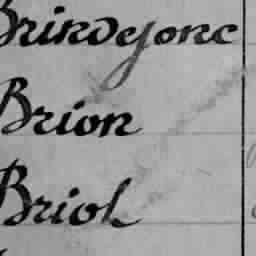 Brindejonc
Brion
Briot